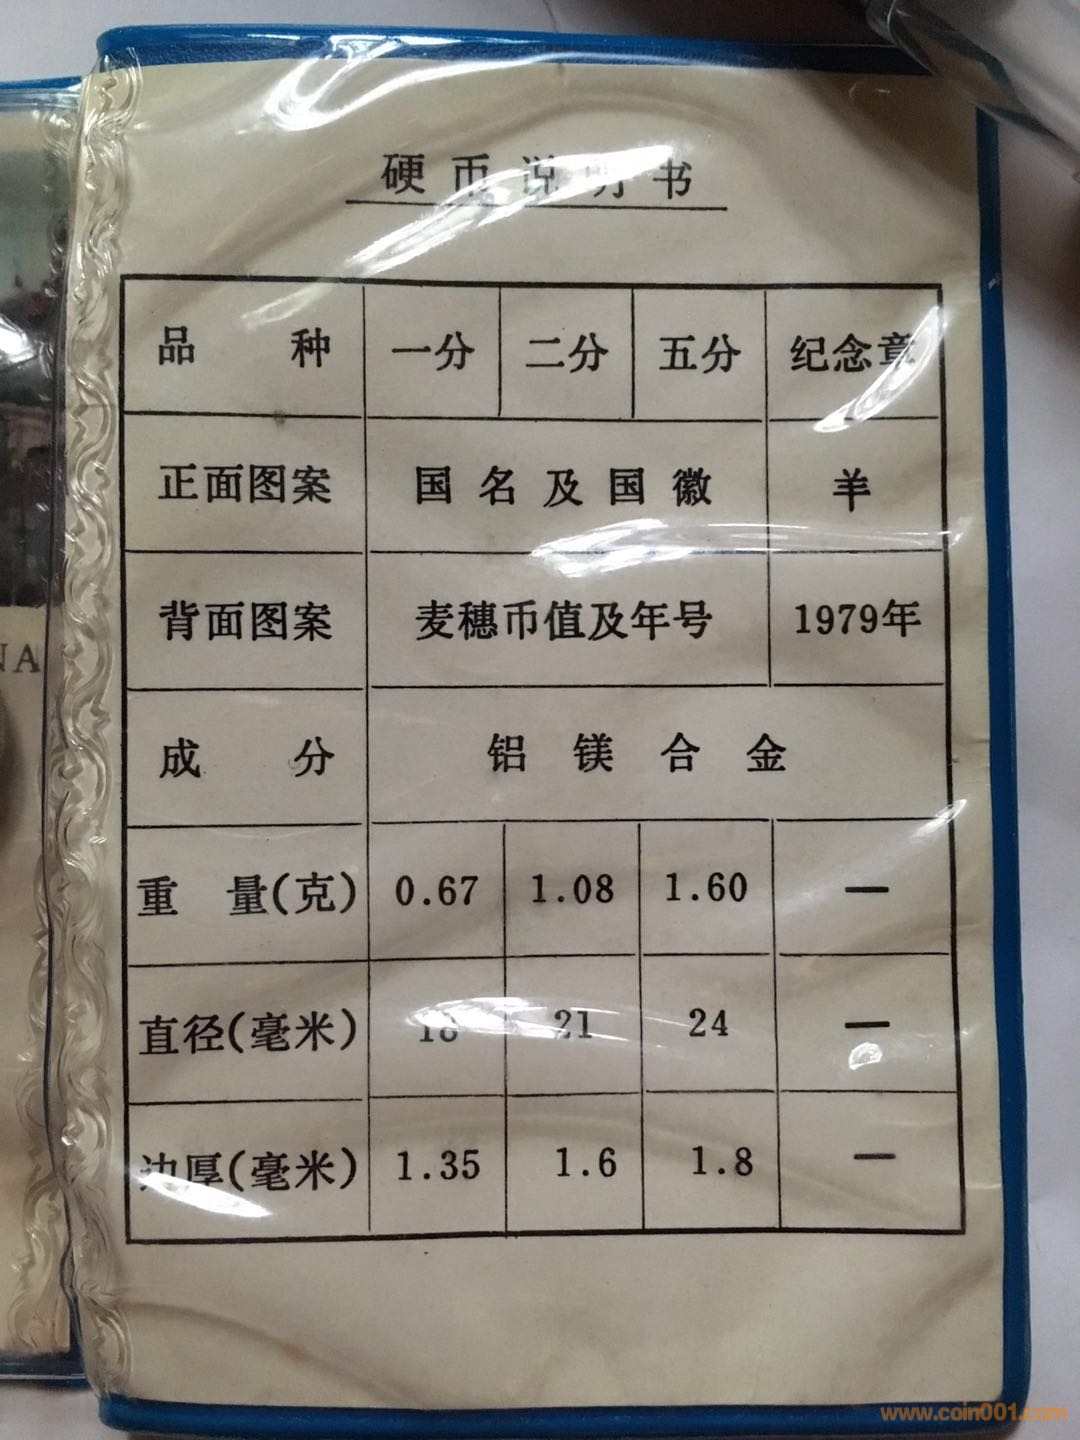 硬币说明书
品种 一分 二分 五分 纪念章
正面图案 国名及国徽 羊
背面图案 麦穗币值及年号 1979年
成分 铝镁合金
重量(克) 0.67 1.08 1.60 —
直径(毫米) 18 21 24 —
边厚(毫米) 1.35 1.6 1.8 —
NA
www.coin001.com